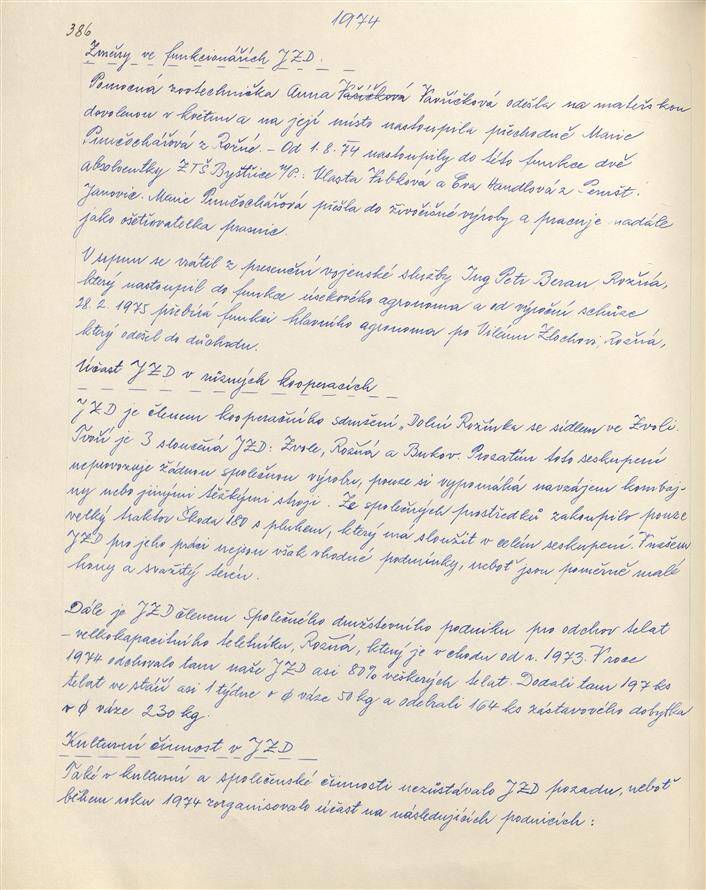 1974
386
Změny ve funkcionářích JZD.
Pomocná zootechnička Anna Vašíčková Vavříčková odešla na mateřskou
dovolenou v květnu a na její místo nastoupila přechodně Marie
Punčochářová z Rožné. - Od 1.8.74 nastoupily do této funkce dvě
absolventky ZTŠ Bystřice n/P.: Vlasta Vibková a Eva Handlová z Pernšt.
Janovic. Marie Punčochářová přešla do živočišné výroby a pracuje nadále
jako ošetřovatelka prasnic.
V srpnu se vrátil z presenční vojenské služby Ing Petr Beran Rožná,
který nastoupil do funkce úsekového agronoma a od výroční schůze
28.2.1975 přebírá funkci hlavního agronoma po Vilému Zlochovi, Rožná,
který odešel do důchodu.
Účast JZD v různých kooperacích
JZD je členem kooperačního sdružení „Dolní Rožínka se sídlem ve Zvoli.
Tvoří je 3 sloučená JZD: Zvole, Rožná a Bukov. Prozatím toto seskupení
neprovozuje žádnou společnou výrobu, pouze si vypomáhá navzájem kombaj-
ny nebo jinými těžkými stroji. Ze společných prostředků zakoupilo pouze
velký traktor Škoda 180 s pluhem, který má sloužit v celém seskupení. V našem
JZD pro jeho práci nejsou však vhodné podmínky, neboť jsou poměrně malé
hony a svažitý terén.
Dále je JZD členem Společného družstevního podniku pro odchov telat
- velkokapacitního teletníku, Rožná, který je v chodu od r. 1973. V roce
1974 odchovalo tam naše JZD asi 80% veškerých telat. Dodali tam 197 ks
telat ve stáří asi 1 týdne v ϕ váze 50 kg a odebrali 164 ks zástavového dobytka
v ϕ váze 230 kg.
Kulturní činnost v JZD
Také v kulturní a společenské činnosti nezůstávalo JZD pozadu, neboť
během roku 1974 zorganisovalo účast na následujících podnicích: